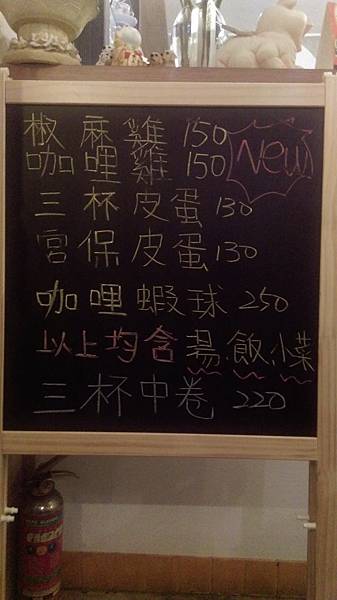 椒麻雞 150
咖哩雞 150 New
三杯皮蛋 130
宮保皮蛋 130
咖哩蝦球 250
以上均含湯、飯、小菜
三杯中卷 220